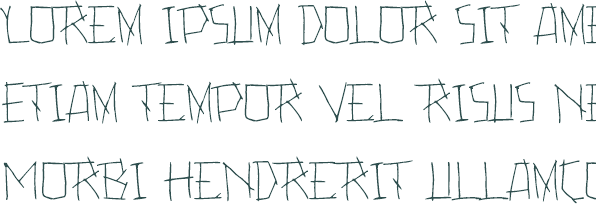 LOREM IPSUM DOLOR SIT AME
ETIAM TEMPOR VEL RISUS NE
MORBI HENDRERIT ULLAMCO